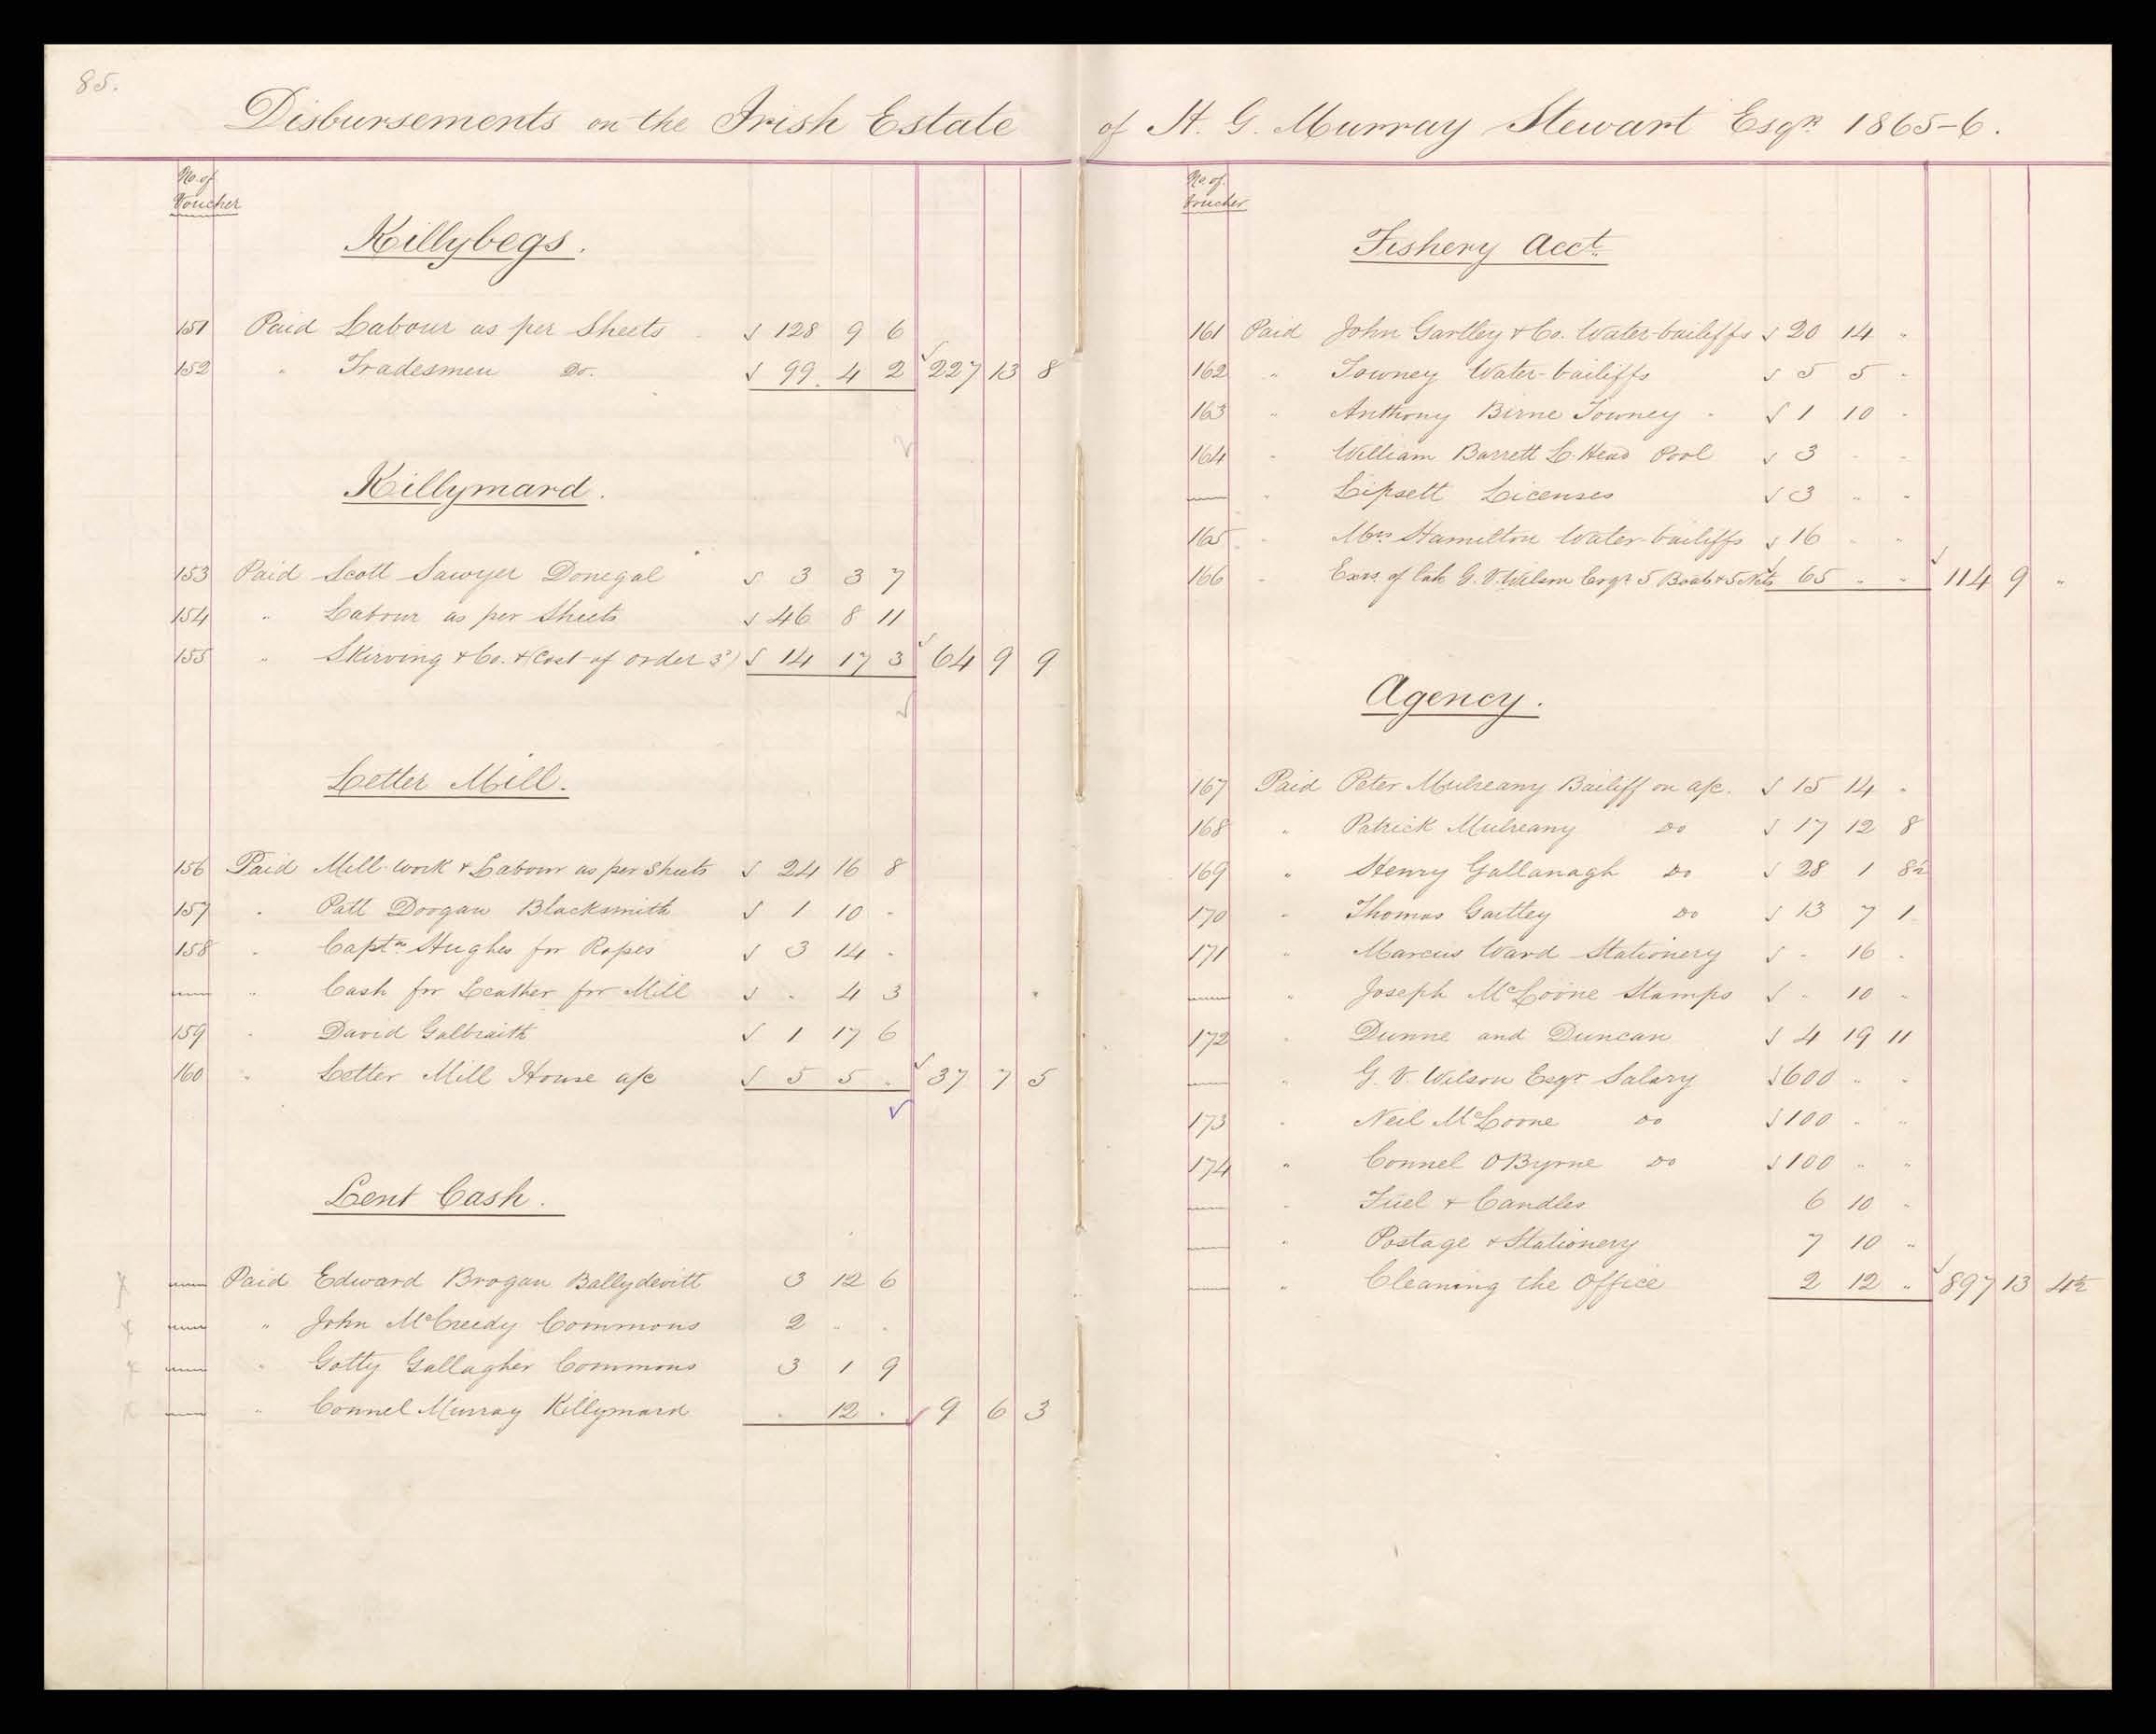 85.
Disbursements on the Irish Estate of H. G. Murray Stewart Esqr. 1865-6.
No. of
Voucher
Killybegs.
151 Paid Labour as per Sheets √ 128 9 6
152 " Tradesmen Do. √ 99 4 2 √ 227 13 8
Killymard.
153 Paid Scott Sawyer Donegal √ 3 3 7
154 " Labour as per Sheets √ 46 8 11
155 " Skirving & Co. & (Cost of order 3d) √ 14 17 3 √ 64 9 9
Letter Mill.
156 Paid Mill-work & Labour as per Sheets √ 24 16 8
157 " Patt Doogan Blacksmith √ 1 10 "
158 " Captn. Hughes for Ropes √ 3 14 "
— " Cash for Leather for Mill √ " 4 3
159 " David Galbraith √ 1 17 6
160 " Letter Mill House a/c √ 5 5 " √ 37 7 5
Lent Cash.
x — Paid Edward Brogan Ballydevitt 3 12 6
x — " John McCreedy Commons 2 " "
x — " Gotty Gallagher Commons 3 1 9
x — " Connel Murray Killymard " 12 " √ 9 6 3
No. of
Voucher
Fishery Acct.
161 Paid John Gartley & Co. Water-bailiffs √ 20 14 "
162 " Towney Water-bailiffs √ 5 5 "
163 " Anthony Birne Towney " √ 1 10 "
164 " William Barrett L. Head Pool √ 3 " "
— " Lipsett Licenses √ 3 " "
165 " Mrs Hamilton Water-bailiffs √ 16 " "
166 " Exrs. of late G. V. Wilson Esqr. 5 Boats & 5 Nets √ 65 " " √ 114 9 "
Agency.
167 Paid Peter Mulreany Bailiff on a/c. √ 15 14 "
168 " Patrick Mulreany Do √ 17 12 8
169 " Henry Gallanagh Do √ 28 1 8½
170 " Thomas Gartley Do √ 13 7 1
171 " Marcus Ward Stationery √ " 16 "
— " Joseph McLoone Stamps √ " 10 "
172 " Dunne and Duncan √ 4 19 11
— " G. V. Wilson Esqr Salary √ 600 " "
173 " Neil McLoone Do √ 100 " "
174 " Connel O'Byrne Do √ 100 " "
— " Fuel & Candles 6 10 "
— " Postage & Stationery 7 10 "
— " Cleaning the Office 2 12 " √ 897 13 4½